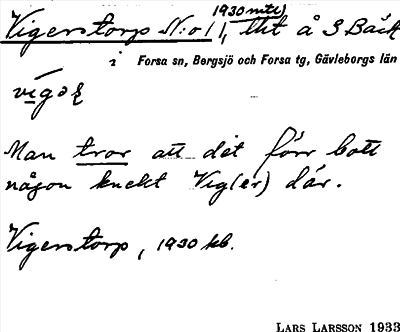 1930 mtl)
Vigerstorp N:o 1, tht å S Bäck
i Forsa sn, Bergsjö och Forsa tg, Gävleborgs län
Man tror att det förr bott
någon knekt Vig(er) där.
Vigerstorp, 1930 kb.
LARS LARSSON 1933